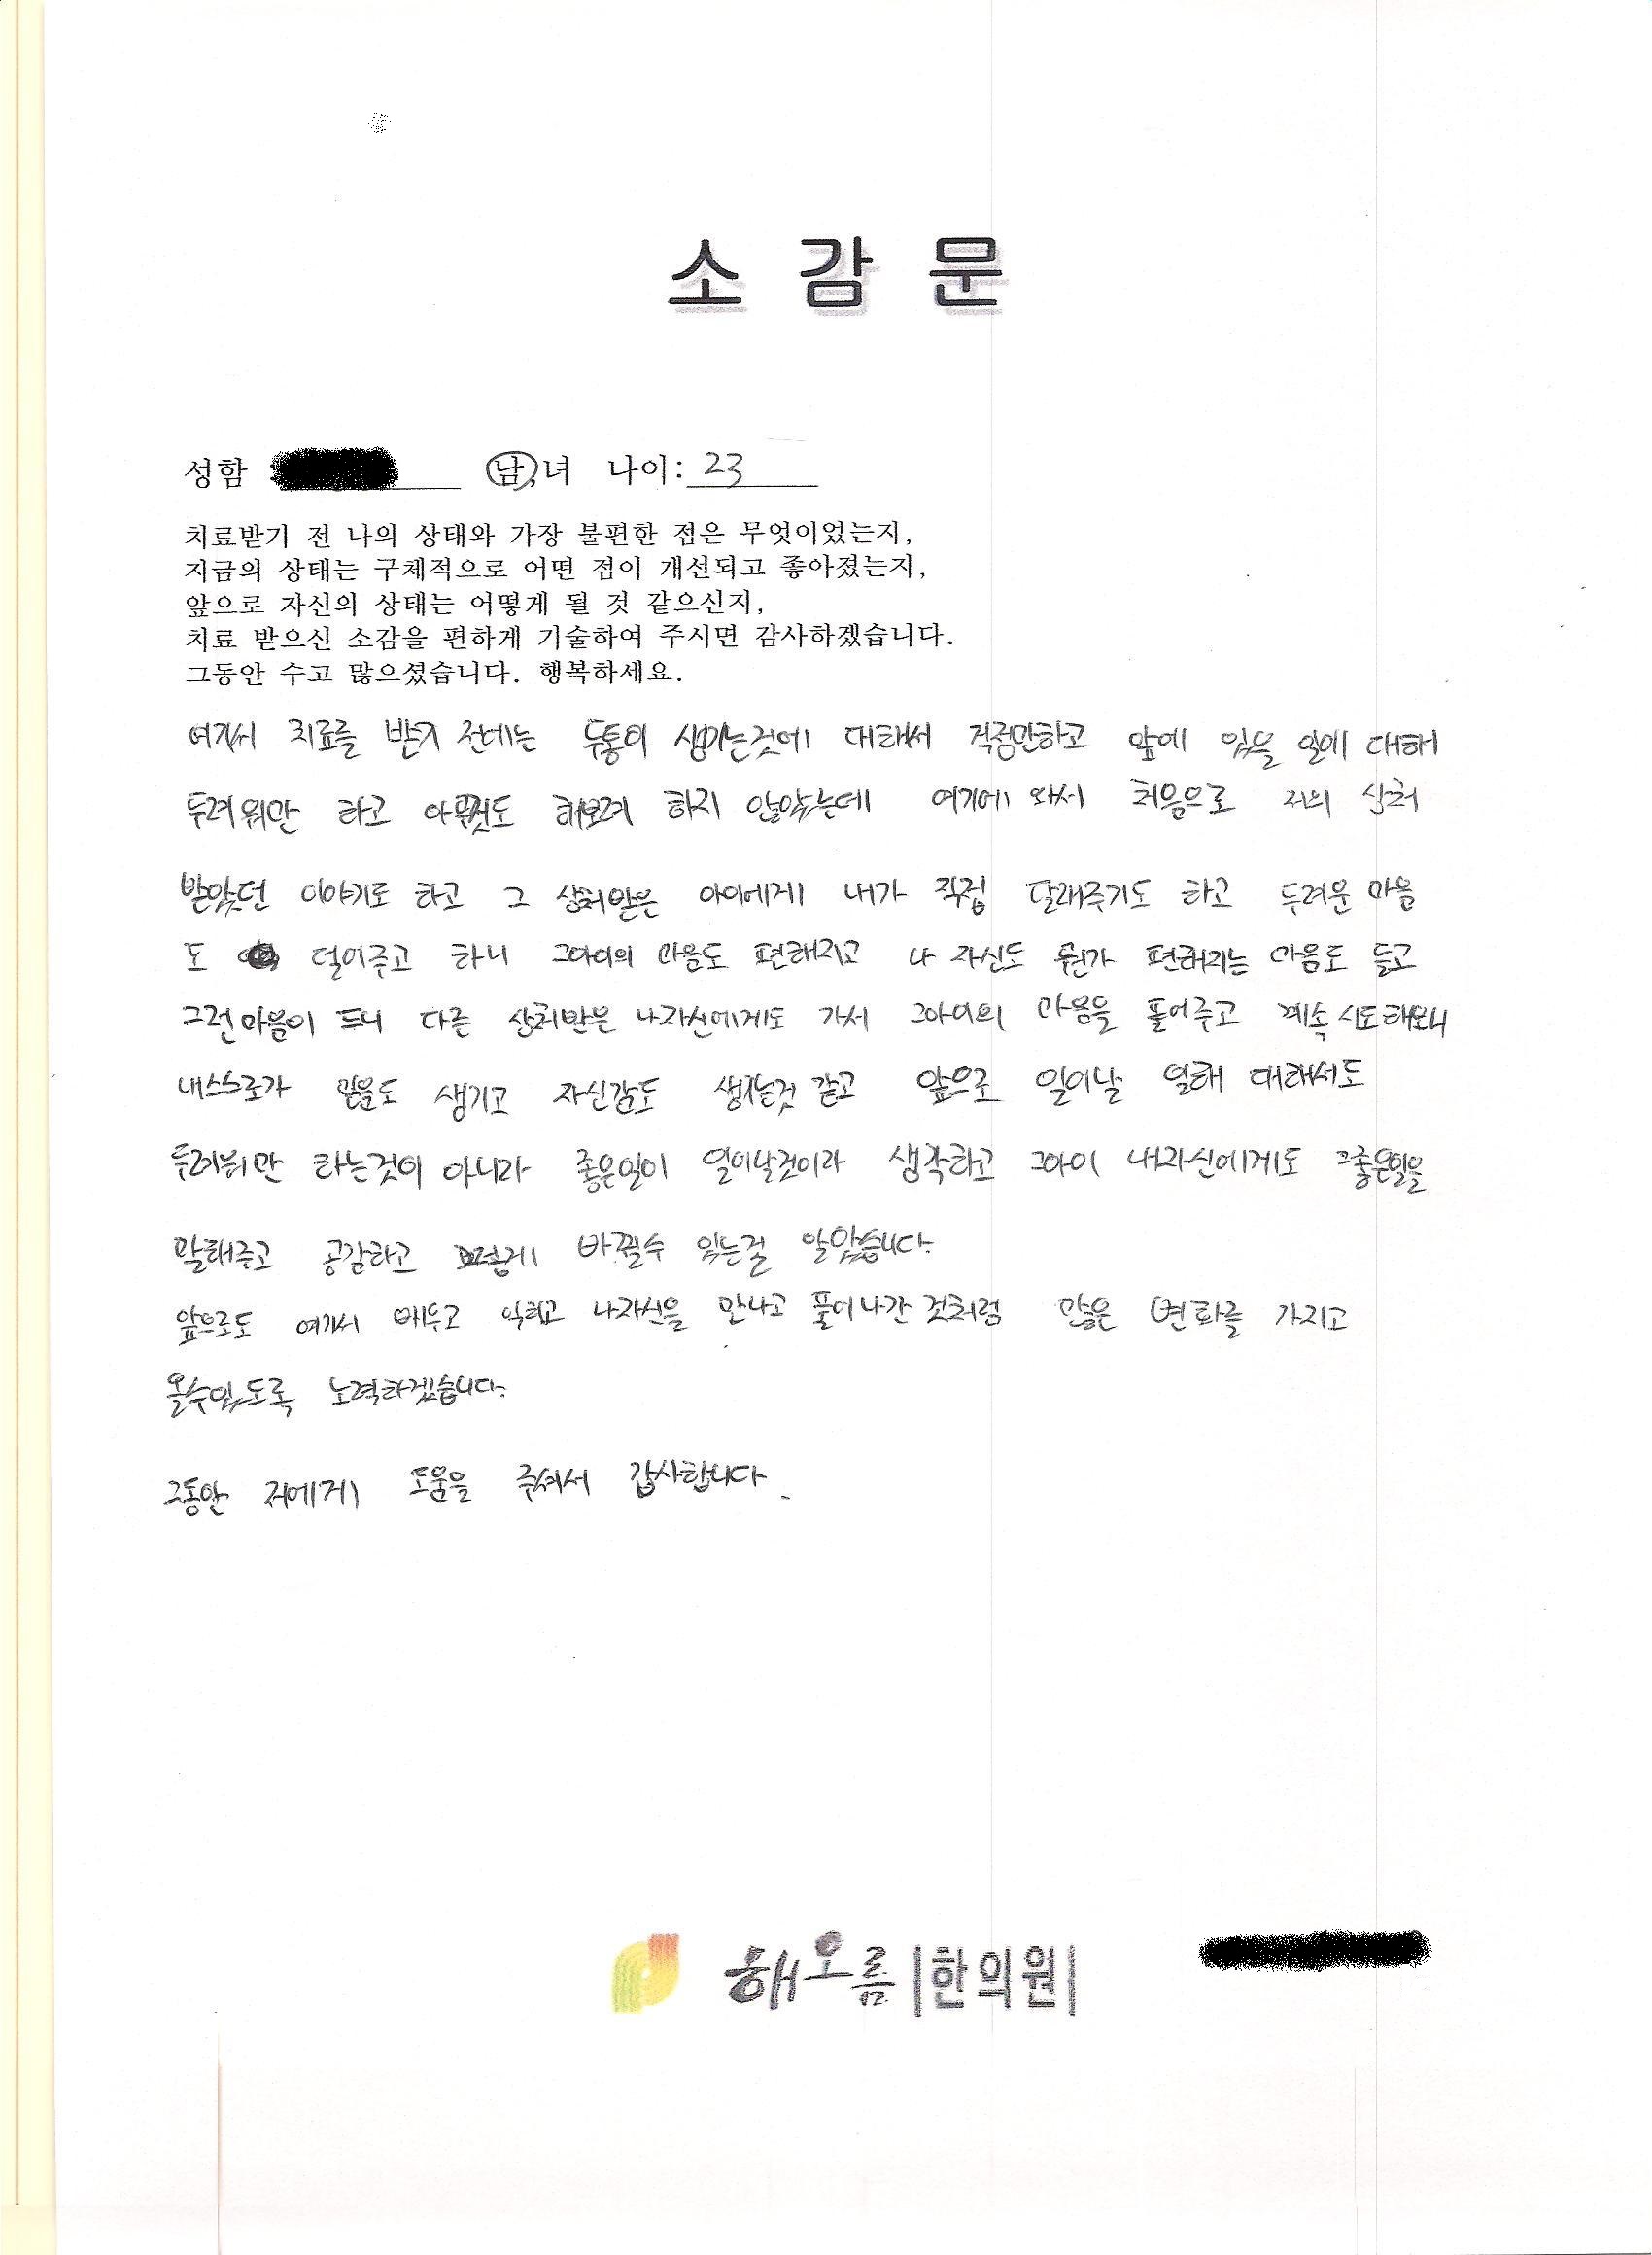 소 감 문
성함 남,녀 나이: 23
치료받기 전 나의 상태와 가장 불편한 점은 무엇이었는지,
지금의 상태는 구체적으로 어떤 점이 개선되고 좋아졌는지,
앞으로 자신의 상태는 어떻게 될 것 같으신지,
치료 받으신 소감을 편하게 기술하여 주시면 감사하겠습니다.
그동안 수고 많으셨습니다. 행복하세요.
여기서 치료를 받기 전에는 두통이 생기는것에 대해서 걱정만하고 앞에 있을 일에 대해
두려워만 하고 아무것도 해보려 하지 않았는데 여기에 와서 처음으로 저의 상처
받았던 이야기로 하고 그 상처받은 아이에게 내가 직접 달래주기도 하고 두려운 마음
도 덜어주고 하니 그아이의 마음도 편해지고 나 자신도 뭔가 편해지는 마음도 들고
그런마음이 드니 다른 상처받은 나자신에게도 가서 그아이의 마음을 풀어주고 계속 시도해보니
내스스로가 믿음도 생기고 자신감도 생기는것 같고 앞으로 일어날 일해 대해서도
두려워만 하는것이 아니라 좋은일이 일어날것이라 생각하고 그아이 내자신에게도 그좋은일을
말해주고 공감하고 바뀔수 있는걸 알았습니다.
앞으로도 여기서 배우고 익히고 나자신을 만나고 풀어나간 것처럼 많은 변화를 가지고
올수있도록 노력하겠습니다.
그동안 저에게 도움을 주셔서 감사합니다.
해오름|한의원|